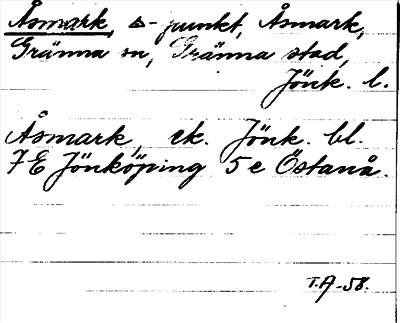 Åsmark, △-punkt, Åsmark,
Gränna sn, Gränna stad,
Jönk. l.
Åsmark, ek. Jönk. bl.
7E Jönköping 5e Östanå.
T.A-58.